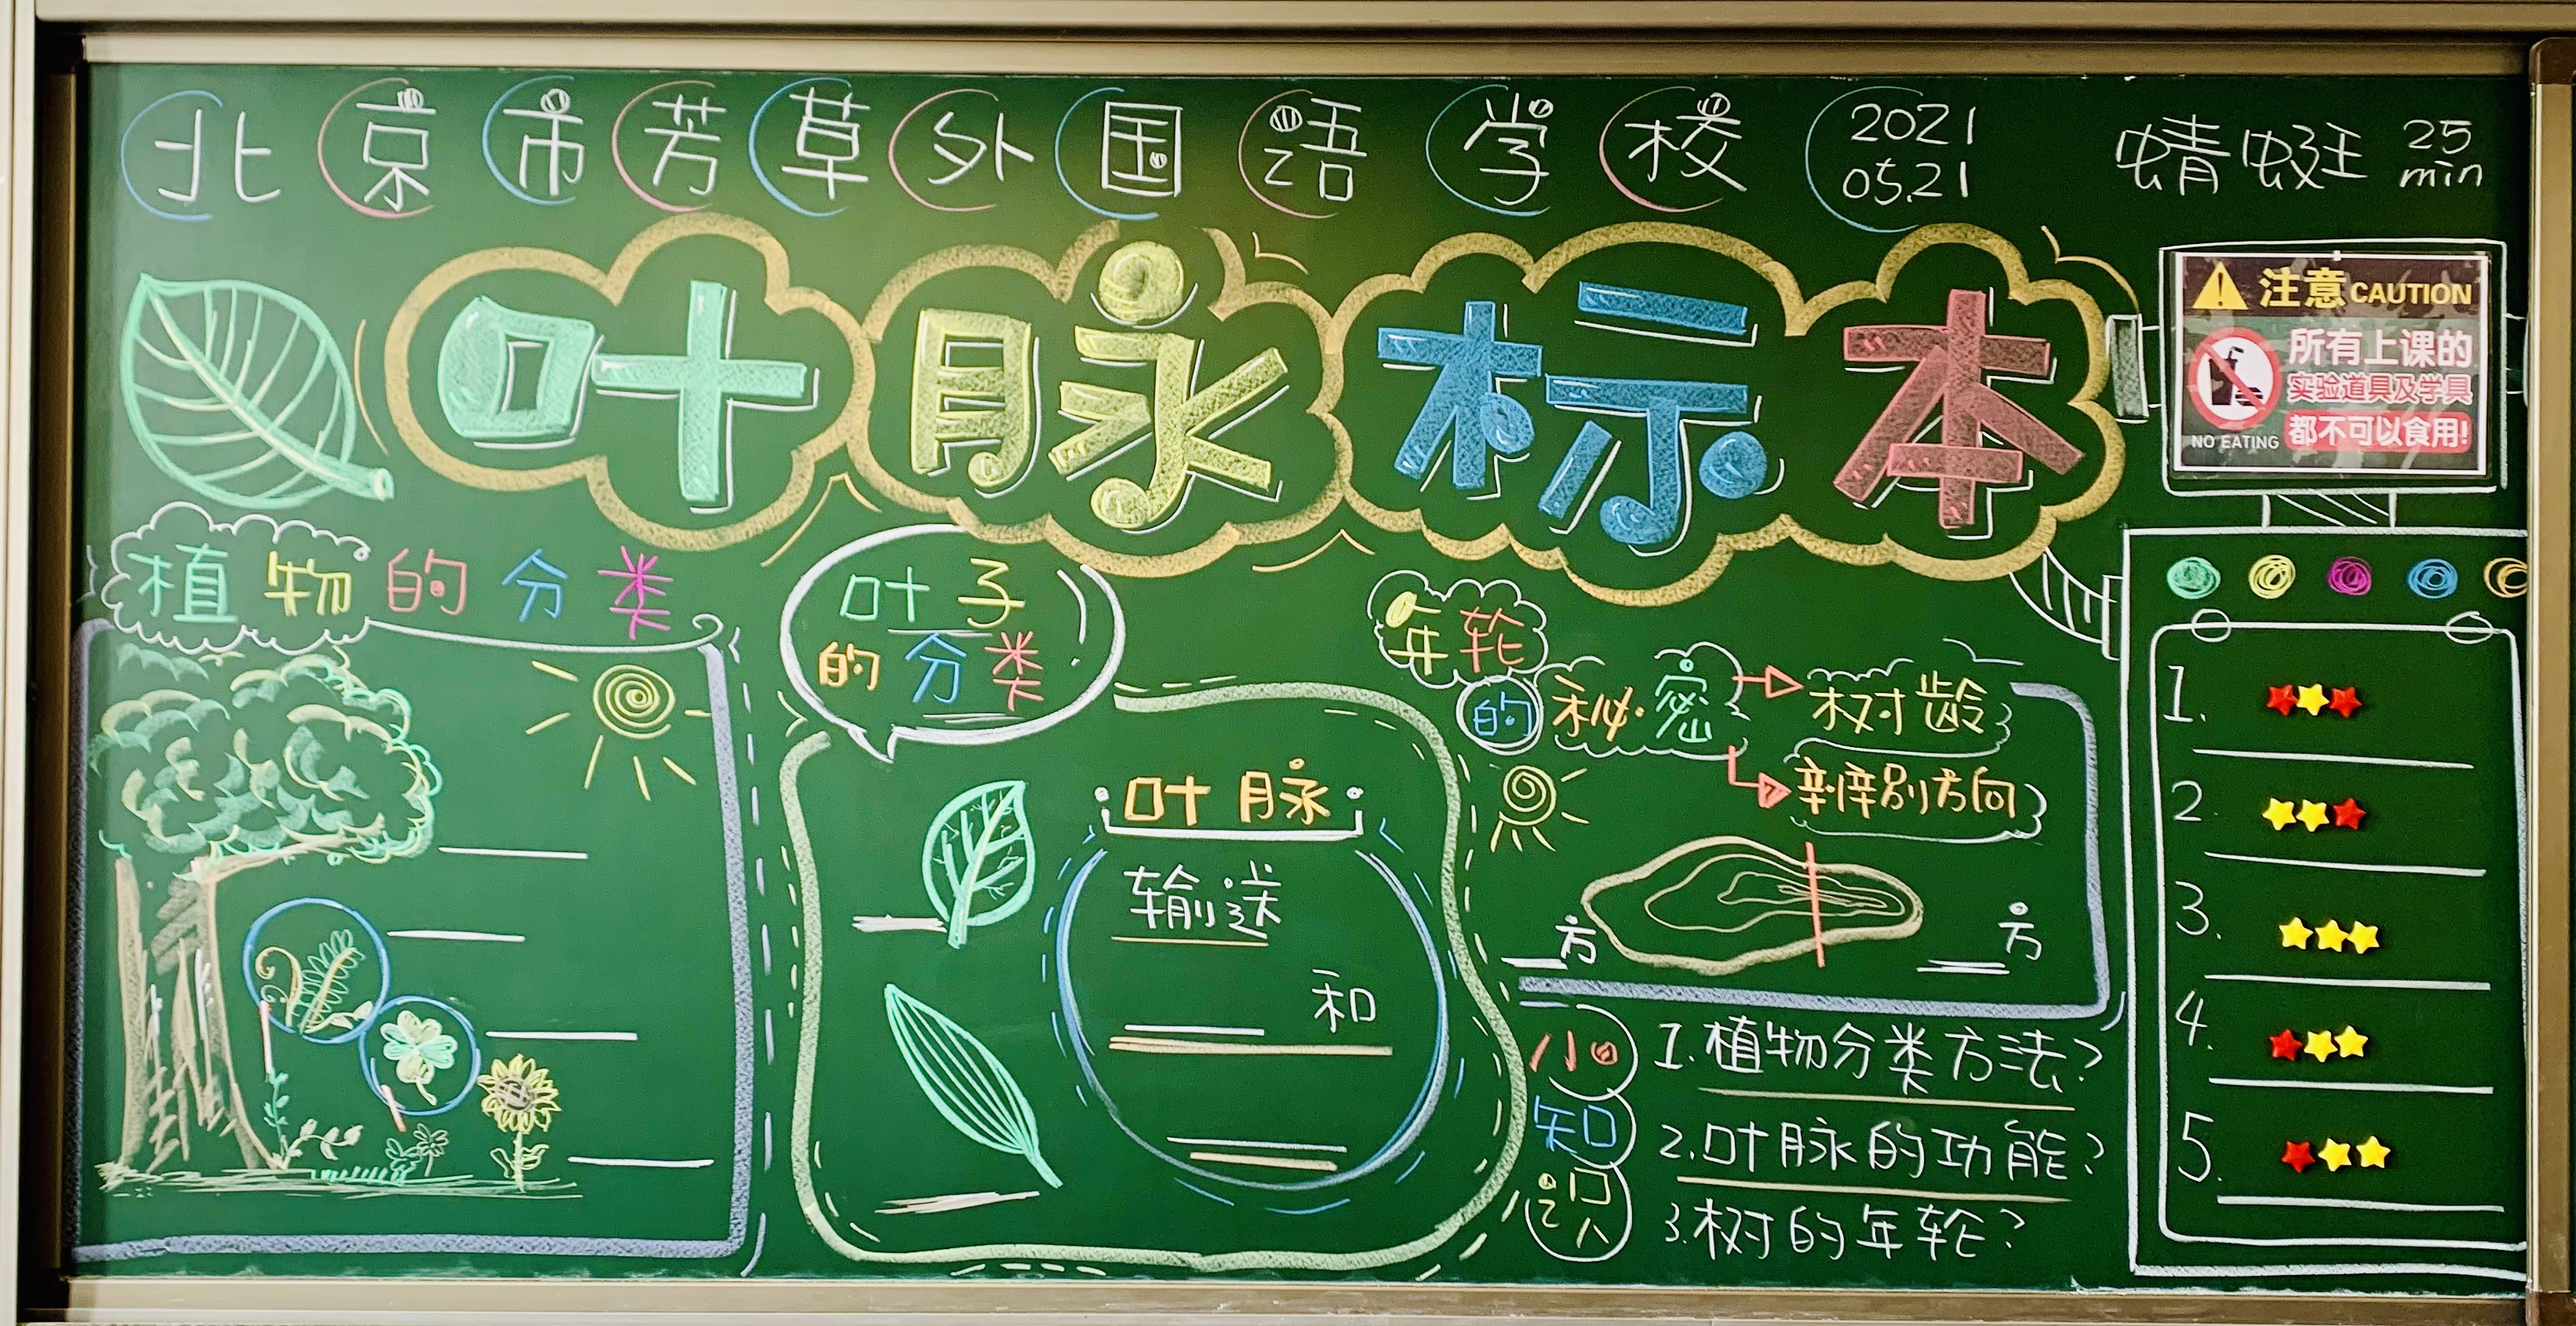 北京市芳草外国语学校 2021 05.21 蜻蜓 25 min
叶脉标本
注意 CAUTION
所有上课的
实验道具及学具
都不可以食用!
NO EATING
植物的分类
叶子
的分类
叶脉
输送
和
年轮
的秘密
树龄
辨别方向
方
方
小知识
1.植物分类方法?
2.叶脉的功能?
3.树的年轮?
1.
2.
3.
4.
5.